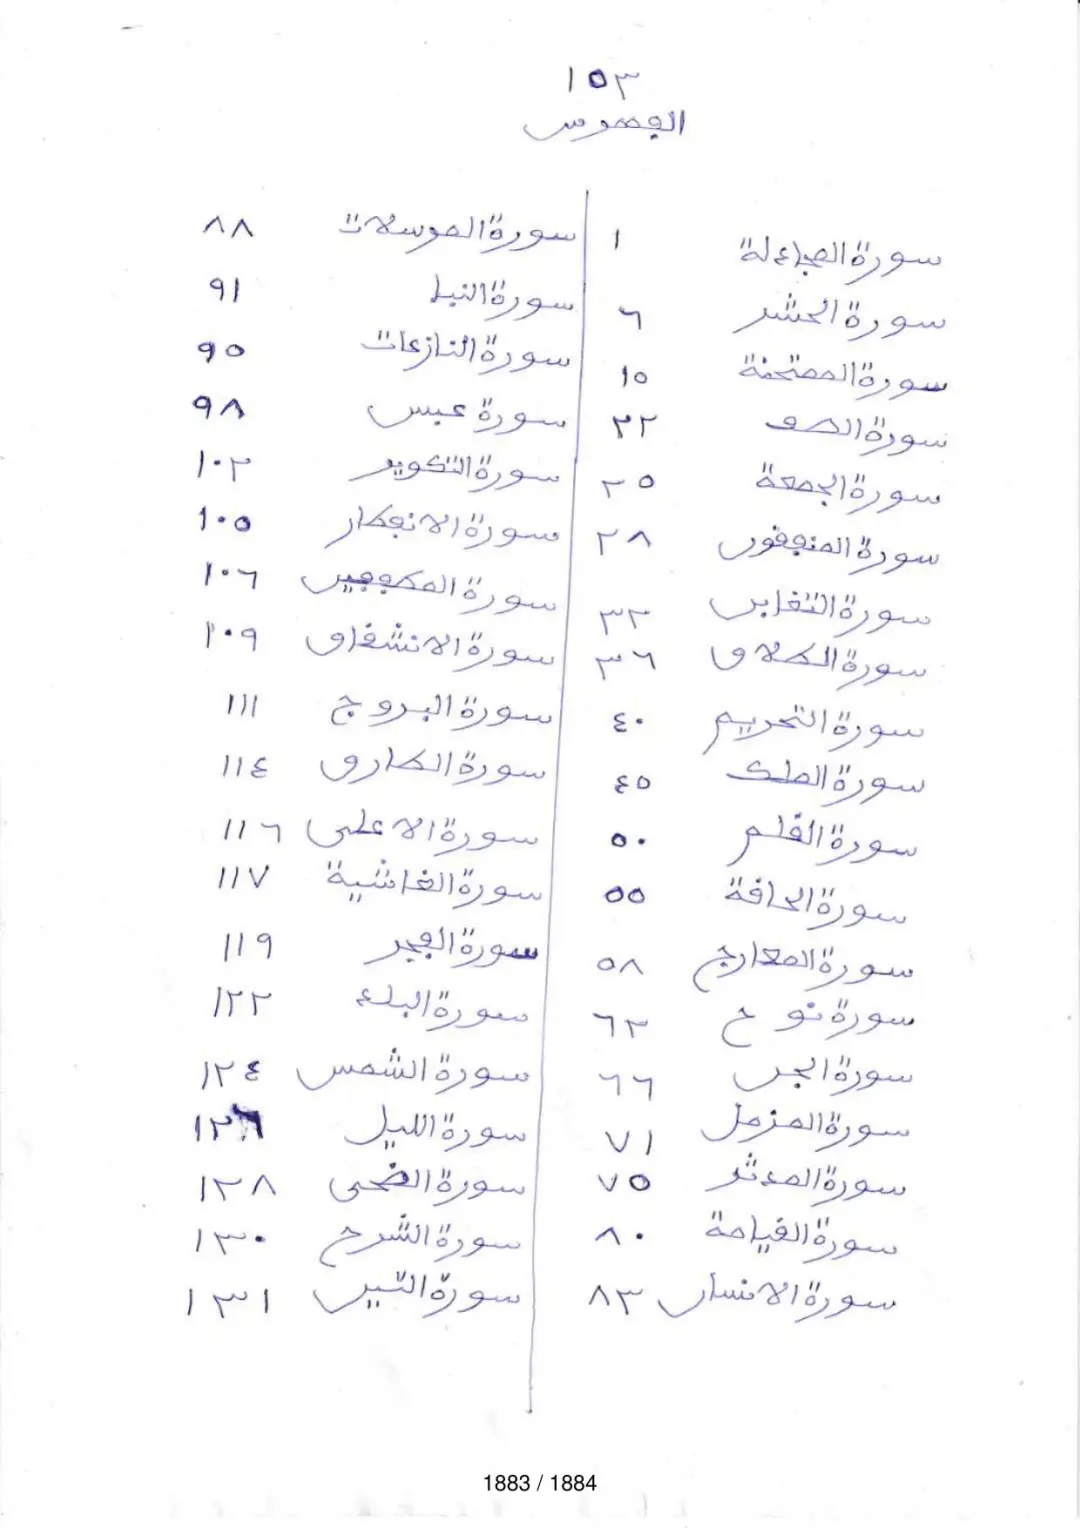 ١٥٣
الفهرس
سورة المجادلة ١
سورة الحشر ٦
سورة الممتحنة ١٥
سورة الصف ٢٢
سورة الجمعة ٢٥
سورة المنفقون ٢٨
سورة التغابن ٣٣
سورة الطلاق ٣٦
سورة التحريم ٤٠
سورة الملك ٤٥
سورة القلم ٥٠
سورة الحاقة ٥٥
سورة المعارج ٥٨
سورة نوح ٦٣
سورة الجن ٦٦
سورة المزمل ٧١
سورة المدثر ٧٥
سورة القيامة ٨٠
سورة الانسان ٨٣
سورة المرسلات ٨٨
سورة النبإ ٩١
سورة النازعات ٩٥
سورة عبس ٩٨
سورة التكوير ١٠٣
سورة الانفطار ١٠٥
سورة المطففين ١٠٦
سورة الانشقاق ١٠٩
سورة البروج ١١١
سورة الطارق ١١٤
سورة الاعلى ١١٦
سورة الغاشية ١١٧
سورة الفجر ١١٩
سورة البلد ١٢٢
سورة الشمس ١٢٤
سورة الليل ١٢٦
سورة الضحى ١٢٨
سورة الشرح ١٣٠
سورة التين ١٣١
1883 / 1884